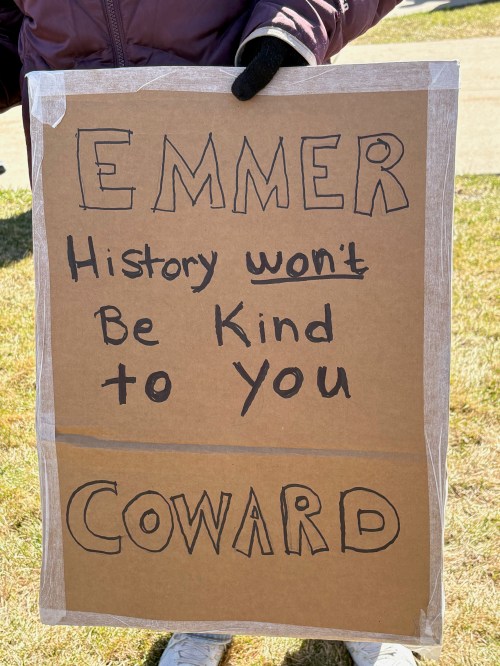 EMMER
History won't
Be Kind
to you
COWARD